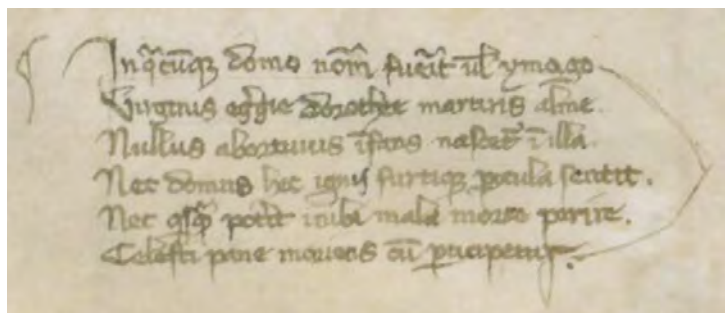 In qᵃcūqꝫ domo nom̄ fuēit ul̄ ymago
Virginis eḡgie dorothee martiris alme.
Nullus abortiuus īfans nascet᷑ ī illa.
Nec domus hec ignis furtiqꝫ ꝑicula sentit.
Nec qisqᵃ̄ pot̄it inibi mala morte perire.
Celesti pane moriens cū ꝑticipetur.